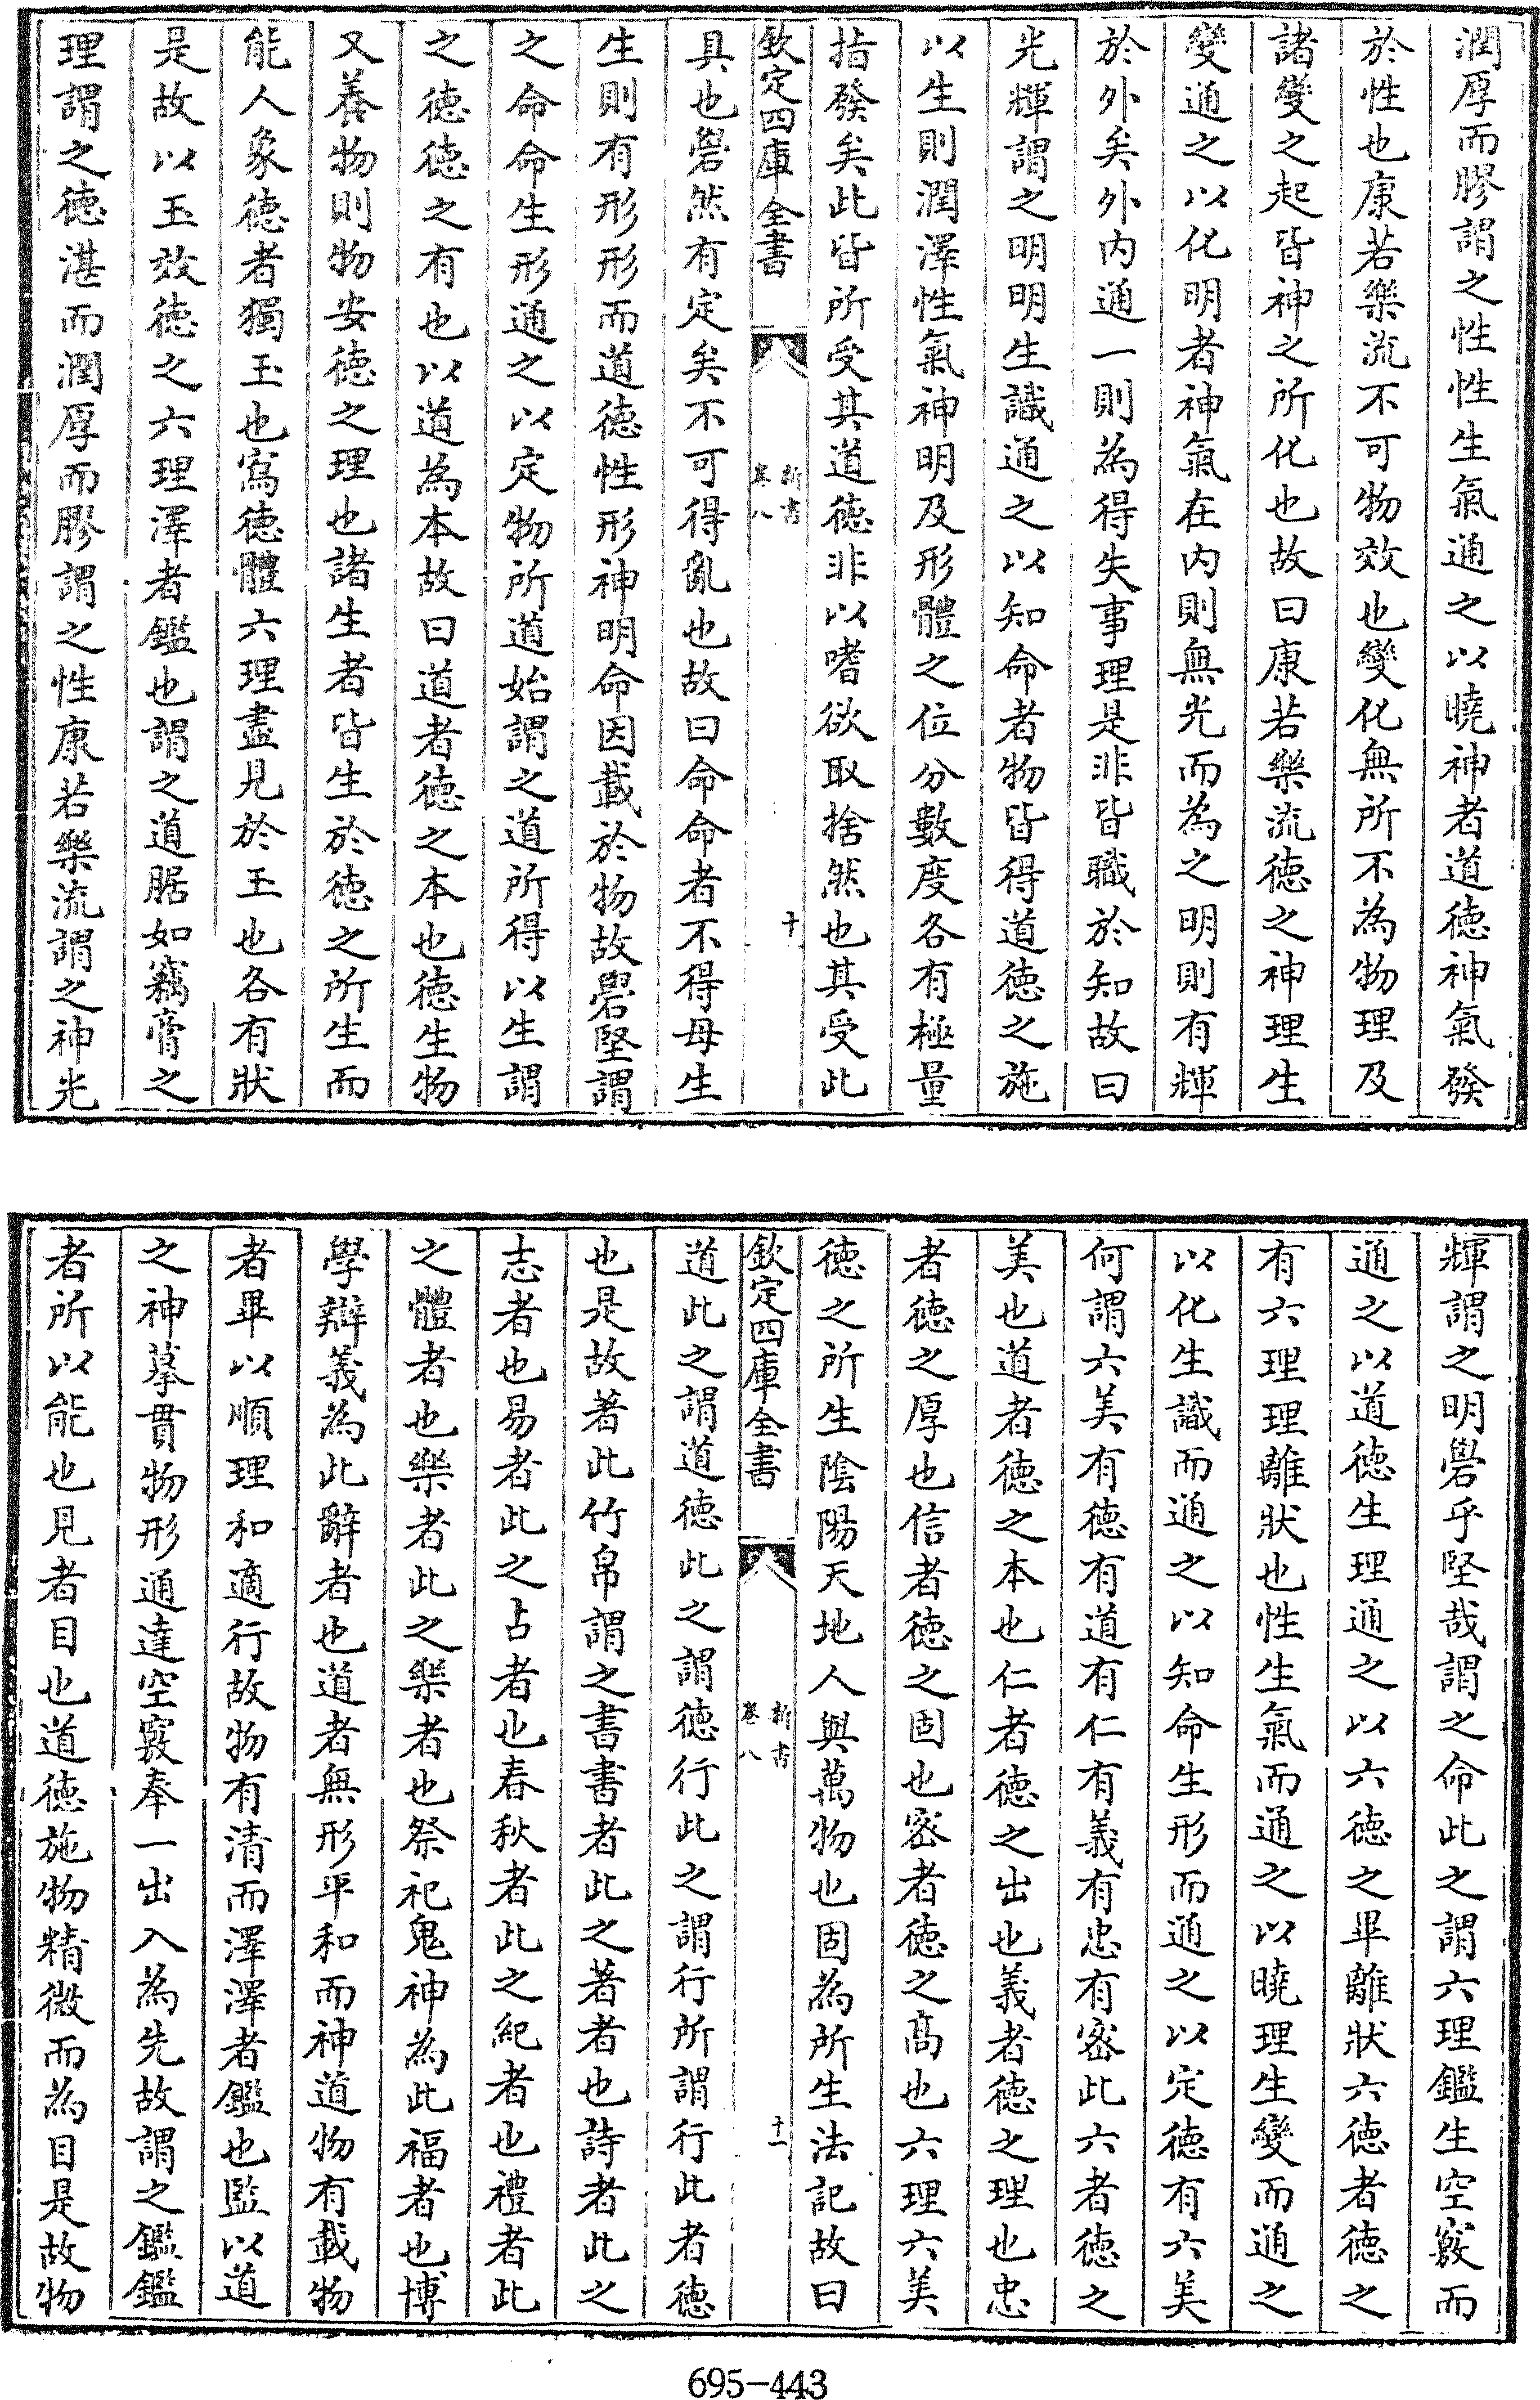 潤厚而膠謂之性性生氣通之以曉神者道徳神氣發
於性也康若樂流不可物效也變化無所不為物理及
諸變之起皆神之所化也故曰康若樂流徳之神理生
變通之以化明者神氣在内則無光而為之明則有輝
於外矣外内通一則為得失事理是非皆職於知故曰
光輝謂之明明生識通之以知命者物皆得道徳之施
以生則潤澤性氣神明及形體之位分數度各有極量
指發矣此皆所受其道徳非以嗜欲取捨然也其受此
欽定四庫全書
新書
卷八
十
具也礐然有定矣不可得亂也故曰命命者不得毋生
生則有形形而道徳性形神明命因載於物故礐堅謂
之命命生形通之以定物所道始謂之道所得以生謂
之徳徳之有也以道為本故曰道者徳之本也徳生物
又養物則物安徳之理也諸生者皆生於徳之所生而
能人象徳者獨玉也寫徳體六理盡見於玉也各有狀
是故以玉效徳之六理澤者鑑也謂之道腒如竊膏之
理謂之徳湛而潤厚而膠謂之性康若樂流謂之神光
輝謂之明礐乎堅哉謂之命此之謂六理鑑生空竅而
通之以道徳生理通之以六徳之畢離狀六徳者徳之
有六理理離狀也性生氣而通之以曉理生變而通之
以化生識而通之以知命生形而通之以定徳有六美
何謂六美有徳有道有仁有義有忠有宻此六者徳之
美也道者徳之本也仁者徳之出也義者徳之理也忠
者徳之厚也信者徳之固也宻者徳之髙也六理六美
徳之所生隂陽天地人與萬物也固為所生法記故曰
欽定四庫全書
新書
卷八
十一
道此之謂道徳此之謂徳行此之謂行所謂行此者徳
也是故著此竹帛謂之書書者此之著者也詩者此之
志者也易者此之占者也春秋者此之紀者也禮者此
之體者也樂者此之樂者也祭祀鬼神為此福者也博
學辯義為此辭者也道者無形平和而神道物有載物
者畢以順理和適行故物有清而澤澤者鑑也監以道
之神摹貫物形通達空竅奉一出入為先故謂之鑑鑑
者所以能也見者目也道徳施物精微而為目是故物
695-443